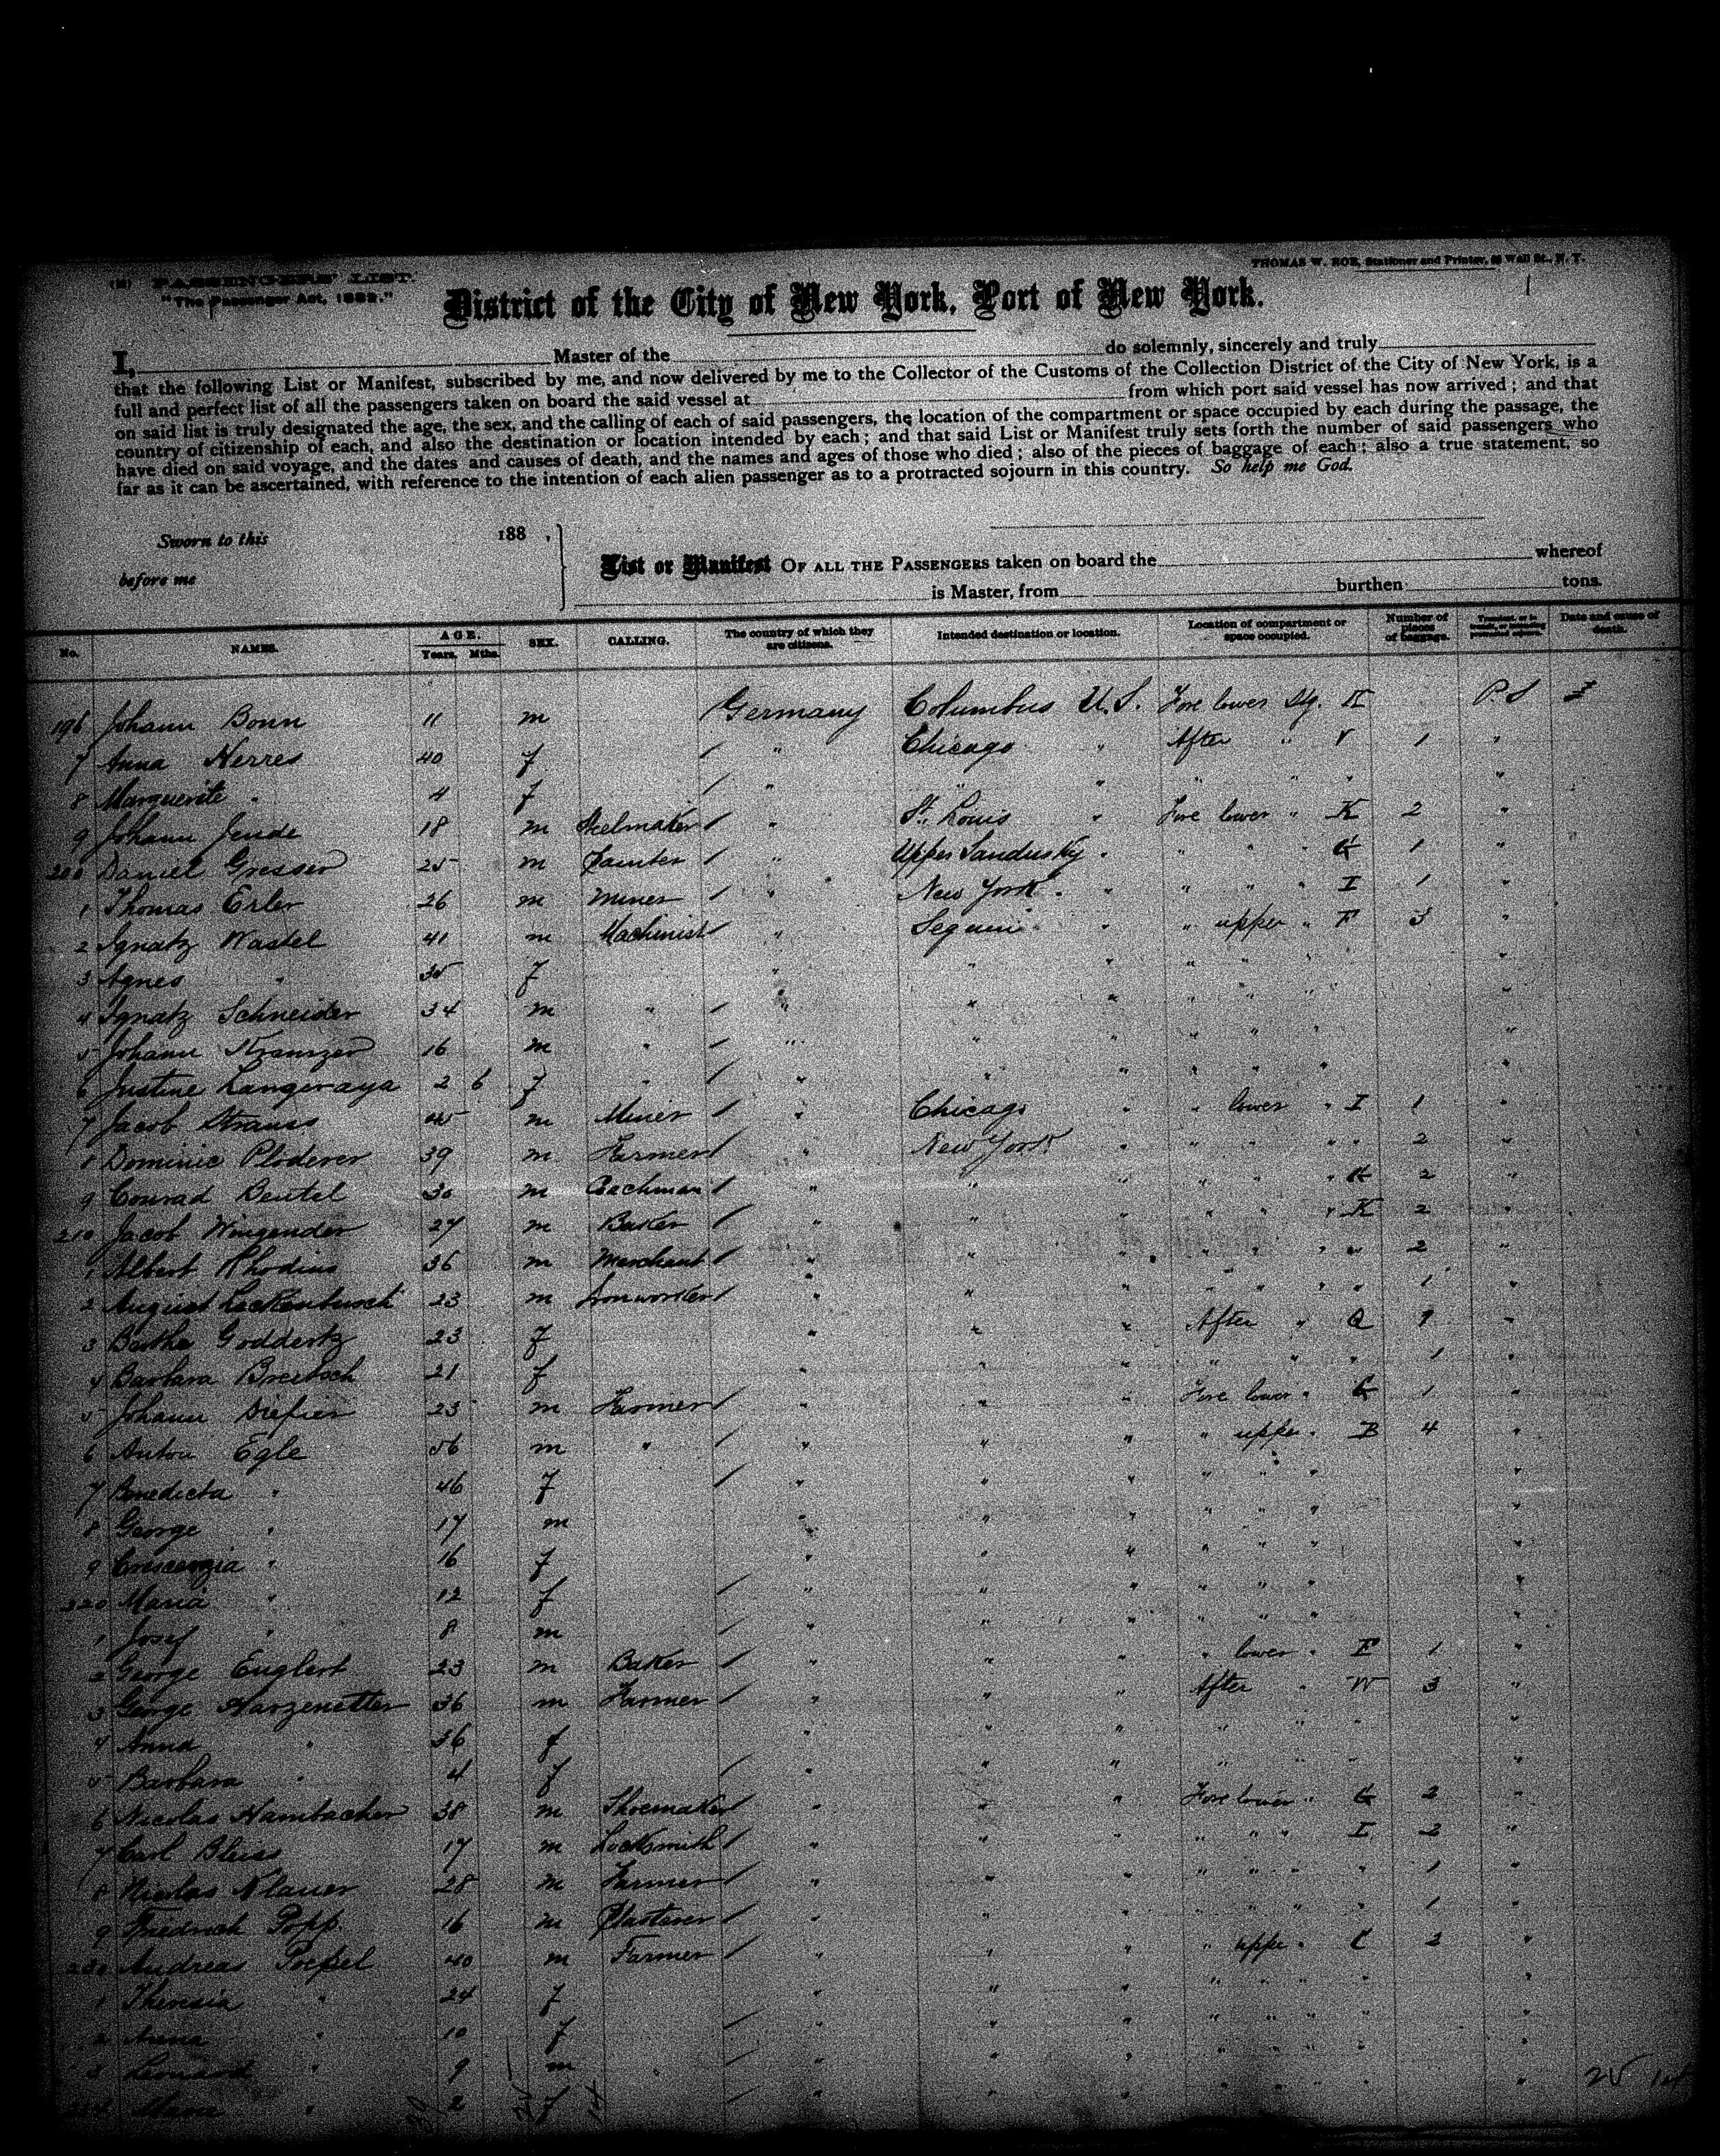 (M) PASSENGERS' LIST.
"The Passenger Act, 1882."
THOMAS W. ROE, Stationer and Printer, Wall St., N. Y.
District of the City of New York, Port of New York.
I, Master of the do solemnly, sincerely and truly
that the following List or Manifest, subscribed by me, and now delivered by me to the Collector of the Customs of the Collection District of the City of New York, is a
full and perfect list of all the passengers taken on board the said vessel at from which port said vessel has now arrived; and that
on said list is truly designated the age, the sex, and the calling of each of said passengers, the location of the compartment or space occupied by each during the passage, the
country of citizenship of each, and also the destination or location intended by each; and that said List or Manifest truly sets forth the number of said passengers who
have died on said voyage, and the dates and causes of death, and the names and ages of those who died; also of the pieces of baggage of each; also a true statement, so
far as it can be ascertained, with reference to the intention of each alien passenger as to a protracted sojourn in this country. So help me God.
Sworn to this 188 ,
before me
List or Manifest OF ALL THE PASSENGERS taken on board the whereof
is Master, from burthen tons.
No. NAMES. AGE. Years. Mths. SEX. CALLING. The country of which they are citizens. Intended destination or location. Location of compartment or space occupied. Number of pieces of baggage. Date and cause of death.
196 Johann Bonn 11 m Germany Columbus U.S. Fore lower Stg. K P.S
7 Anna Nerres 40 f " Chicago " After " V 1 "
8 Marguerite " 4 f " " " " " "
9 Johann Jende 18 m Steelmaker " St. Louis " Fore lower " K 2 "
200 Daniel Gresser 25 m Painter " Upper Sandusky " " " " G 1 "
1 Thomas Erler 26 m Miner " New York " " " " I 1 "
2 Ignatz Wastel 41 m Machinist " Seguin " " upper " F 3 "
3 Agnes " 35 f " " " " " "
4 Ignatz Schneider 34 m " " " " " " " "
5 Johann Kramzer 16 m " " " " " " "
6 Justine Langeraya 2 6 f " " " " " " " "
7 Jacob Strauss 45 m Miner " Chicago " " lower " I 1 "
8 Dominic Ploderer 39 m Farmer " New York " " " " " 2 "
9 Conrad Beutel 30 m Coachman " " " " " " G 2 "
210 Jacob Wingender 27 m Baker " " " " " " K 2 "
1 Albert Rhodius 36 m Merchant " " " " " " " 2 "
2 August Leckenbusch 23 m Ironworker " " " " " " " 1 "
3 Bertha Goddertz 23 f " " " After " Q 1 "
4 Barbara Breitsch 21 f " " " " " " 1 "
5 Johann 23 m Farmer " " " Fore lower " G 1 "
6 Anton Egle 56 m " " " " " upper " B 4 "
7 Benedicta " 46 f " " " " " " "
8 George " 17 m " " " " " " "
9 Crescenzia " 16 f " " " " " " "
220 Maria " 12 f " " " " " " "
1 Josef " 8 m " " " " " " "
2 George Englert 23 m Baker " " " " lower " F 1 "
3 George Harzenetter 36 m Farmer " " " After " W 3 "
4 Anna " 36 f " " " " " " "
5 Barbara " 4 f " " " " " " "
6 Nicolas Hambacher 38 m Shoemaker " " " Fore lower " G 2 "
7 Carl Bleiss 17 m Locksmith " " " " " " I 2 "
8 Nicolas Klauer 28 m Farmer " " " " " " " 1 "
9 Friedrich Popp 16 m Plasterer " " " " " " " 1 "
230 Andreas Poepel 40 m Farmer " " " " upper " C 2 "
1 Theresia " 24 f " " " " " " " "
2 Anna " 10 f " " " " " " " "
3 Leonard " 9 m " " " " " " " "
" 2 f " " " " " " " "